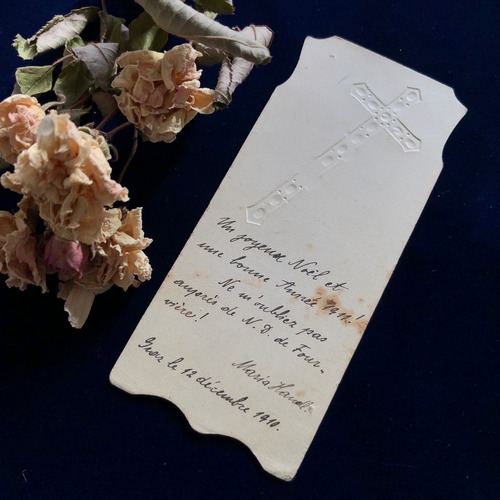 Un joyeux Noël et
une bonne Année 1911!
Ne m'oubliez pas
auprès de N. D. de Four-
vière!
Maria
le 12 décembre 1910.